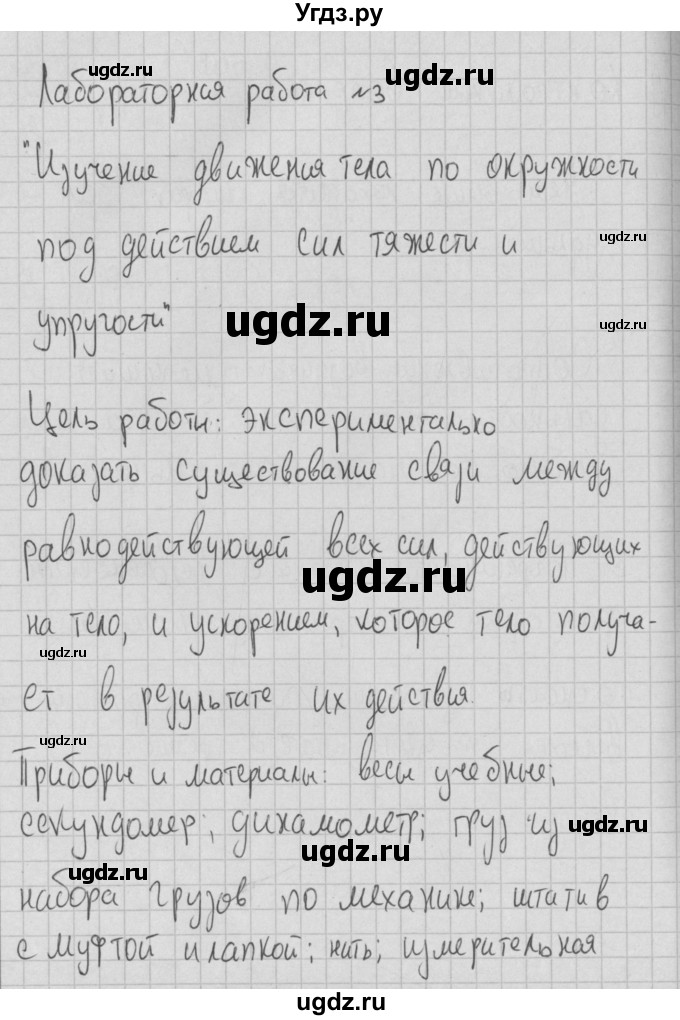 Угдз.ру
ugdz.ru
Лабораторная работа №3
"Изучение движения тела по окружности
под действием сил тяжести и
ugdz.ru
упругости"
ugdz.ru
ugdz.ru
Цель работы: экспериментально
доказать существование связи между
равнодействующей всех сил, действующих
ugdz.ru
на тело, и ускорением, которое тело получа-
ugdz.ru
ет в результате их действия.
ugdz.ru
Приборы и материалы: весы учебные;
секундомер; динамометр; груз из
ugdz.ru
ugdz.ru
набора грузов по механике; штатив
с муфтой и лапкой; нить; измерительная
ugdz.ru